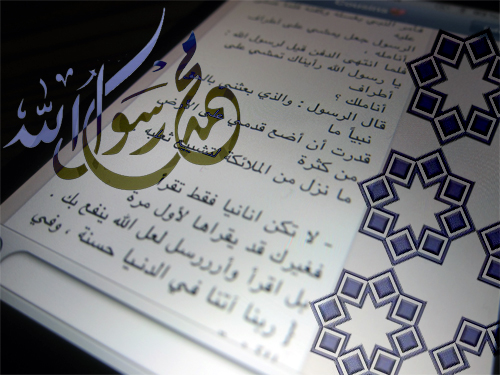 Cousins
فأمر النبي بغسله وكفنه
الرسول جعل يمشي على أطراف
أنامله عليه
فلما انتهى الدفن قيل لرسول الله :
يا رسول الله رأيناك تمشي على
أطراف
أناملك ؟
قال الرسول : والذي بعثني بالحق
نبياً ما
قدرت أن أضع قدمي على الأرض
من كثرة
ما نزل من الملائكة لتشييع ثعلبه
- لا تكن انانيا فقط تقرأ
فغيرك قد يقراها لأول مرة
بل اقرأ وأرررسل لعل الله ينفع بك .
{ ربنا آتنا في الدنيا حسنة ، وفي
محمد رسول الله